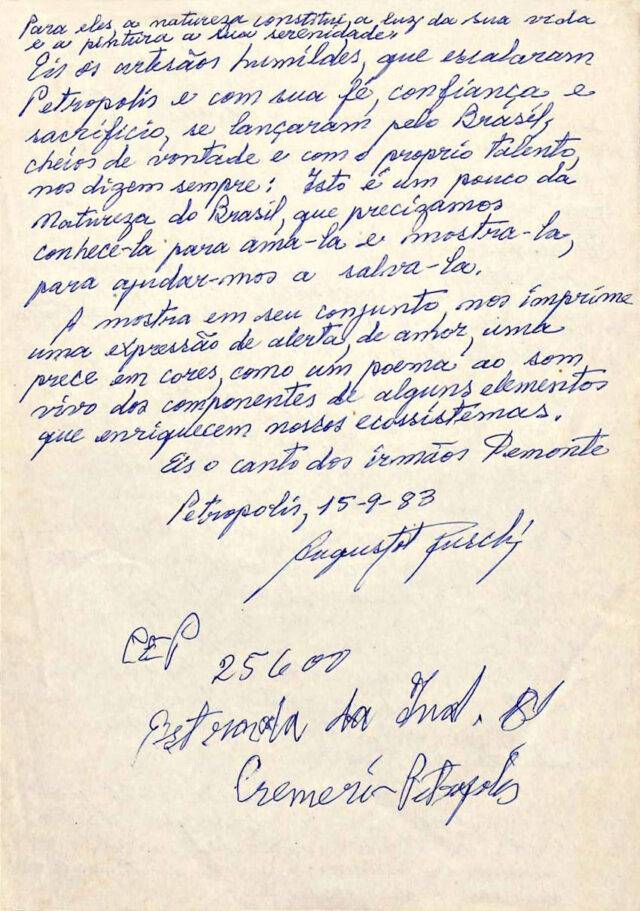 Para eles a natureza constitui a luz da sua vida
e a pintura a sua serenidade.
Eis os artesãos humildes, que escalaram
Petropolis e com sua fé, confiança e
sacrifício, se lançaram pelo Brasil,
cheios de vontade e com o proprio talento,
nos dizem sempre: Isto é um pouco da
Natureza do Brasil, que precizamos
conhece-la para ama-la e mostra-la,
para ajudar-mos a salva-la.
A mostra em seu conjunto, nos imprime
uma expressão de alerta, de amor, uma
prece em cores, como um poema ao som
vivo dos componentes de alguns elementos
que enriquecem nossos ecossistemas.
Eis o canto dos irmãos Demonte
Petropolis, 15-9-83
Augusto Ruschi
CEP
25600
Estrada da Ind. 81
Cremerí - Petropolis